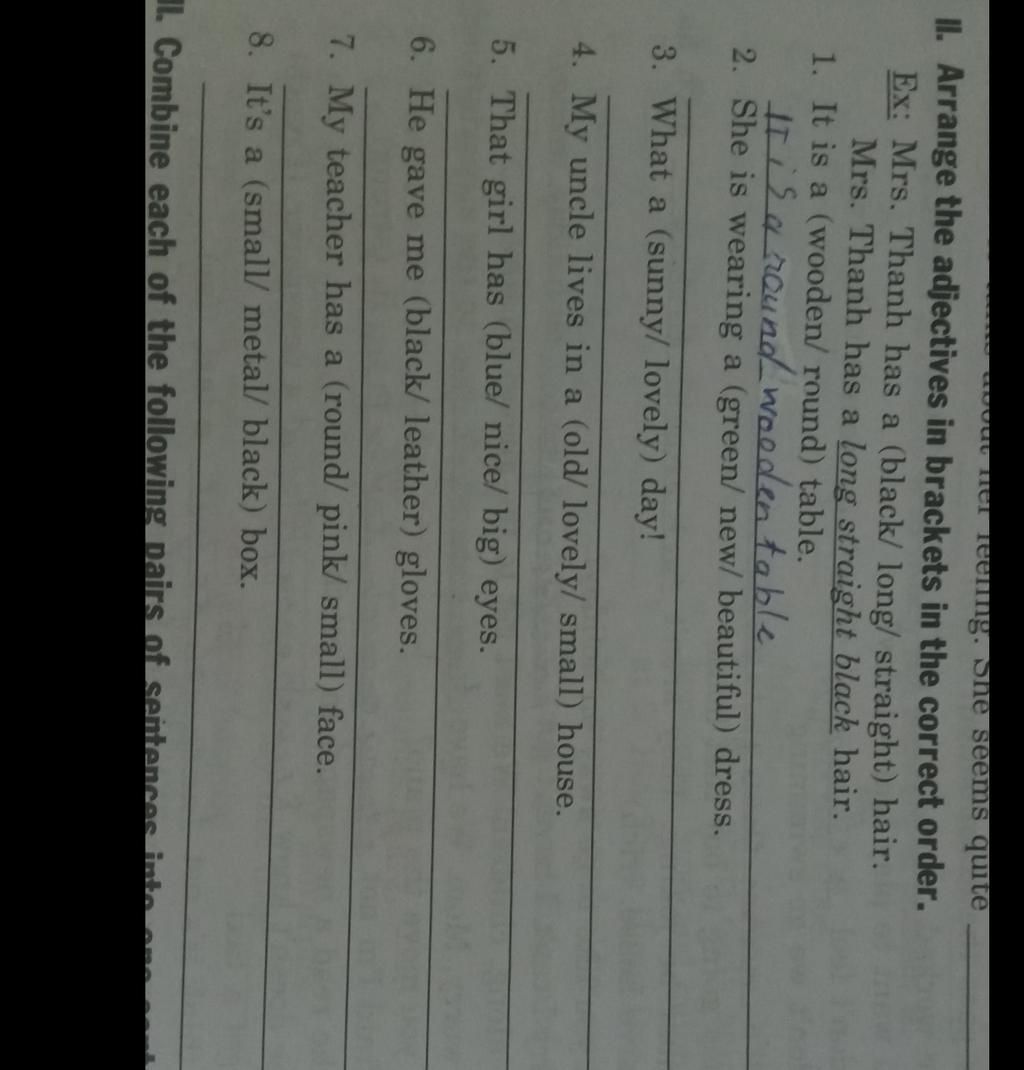 about her feeling. She seems quite
II. Arrange the adjectives in brackets in the correct order.
Ex: Mrs. Thanh has a (black/ long/ straight) hair.
Mrs. Thanh has a long straight black hair.
1. It is a (wooden/ round) table.
It is a round wooden table
2. She is wearing a (green/ new/ beautiful) dress.
3. What a (sunny/ lovely) day!
4. My uncle lives in a (old/ lovely/ small) house.
5. That girl has (blue/ nice/ big) eyes.
6. He gave me (black/ leather) gloves.
7. My teacher has a (round/ pink/ small) face.
8. It's a (small/ metal/ black) box.
II. Combine each of the following pairs of sentences into one